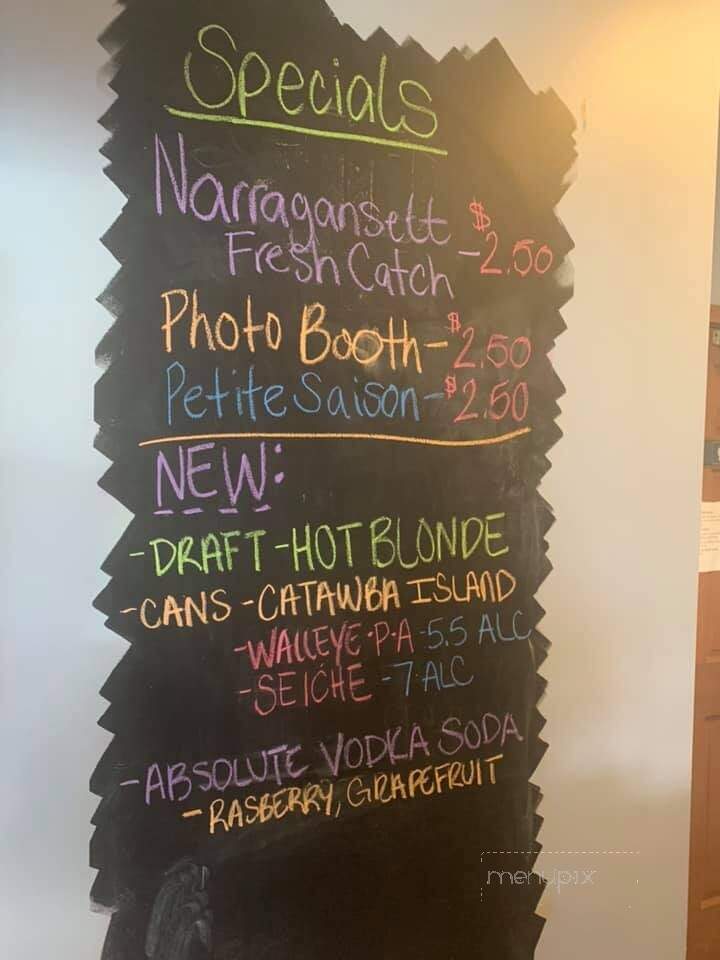 Specials
Narragansett
Fresh Catch - $2.50
Photo Booth - $2.50
Petite Saison - $2.50
NEW:
-DRAFT -HOT BLONDE
-CANS -CATAWBA ISLAND
-WALLEYE·P·A -5.5 ALC
-SEICHE -7 ALC
-ABSOLUTE VODKA SODA
-RASBERRY, GRAPEFRUIT
menupix